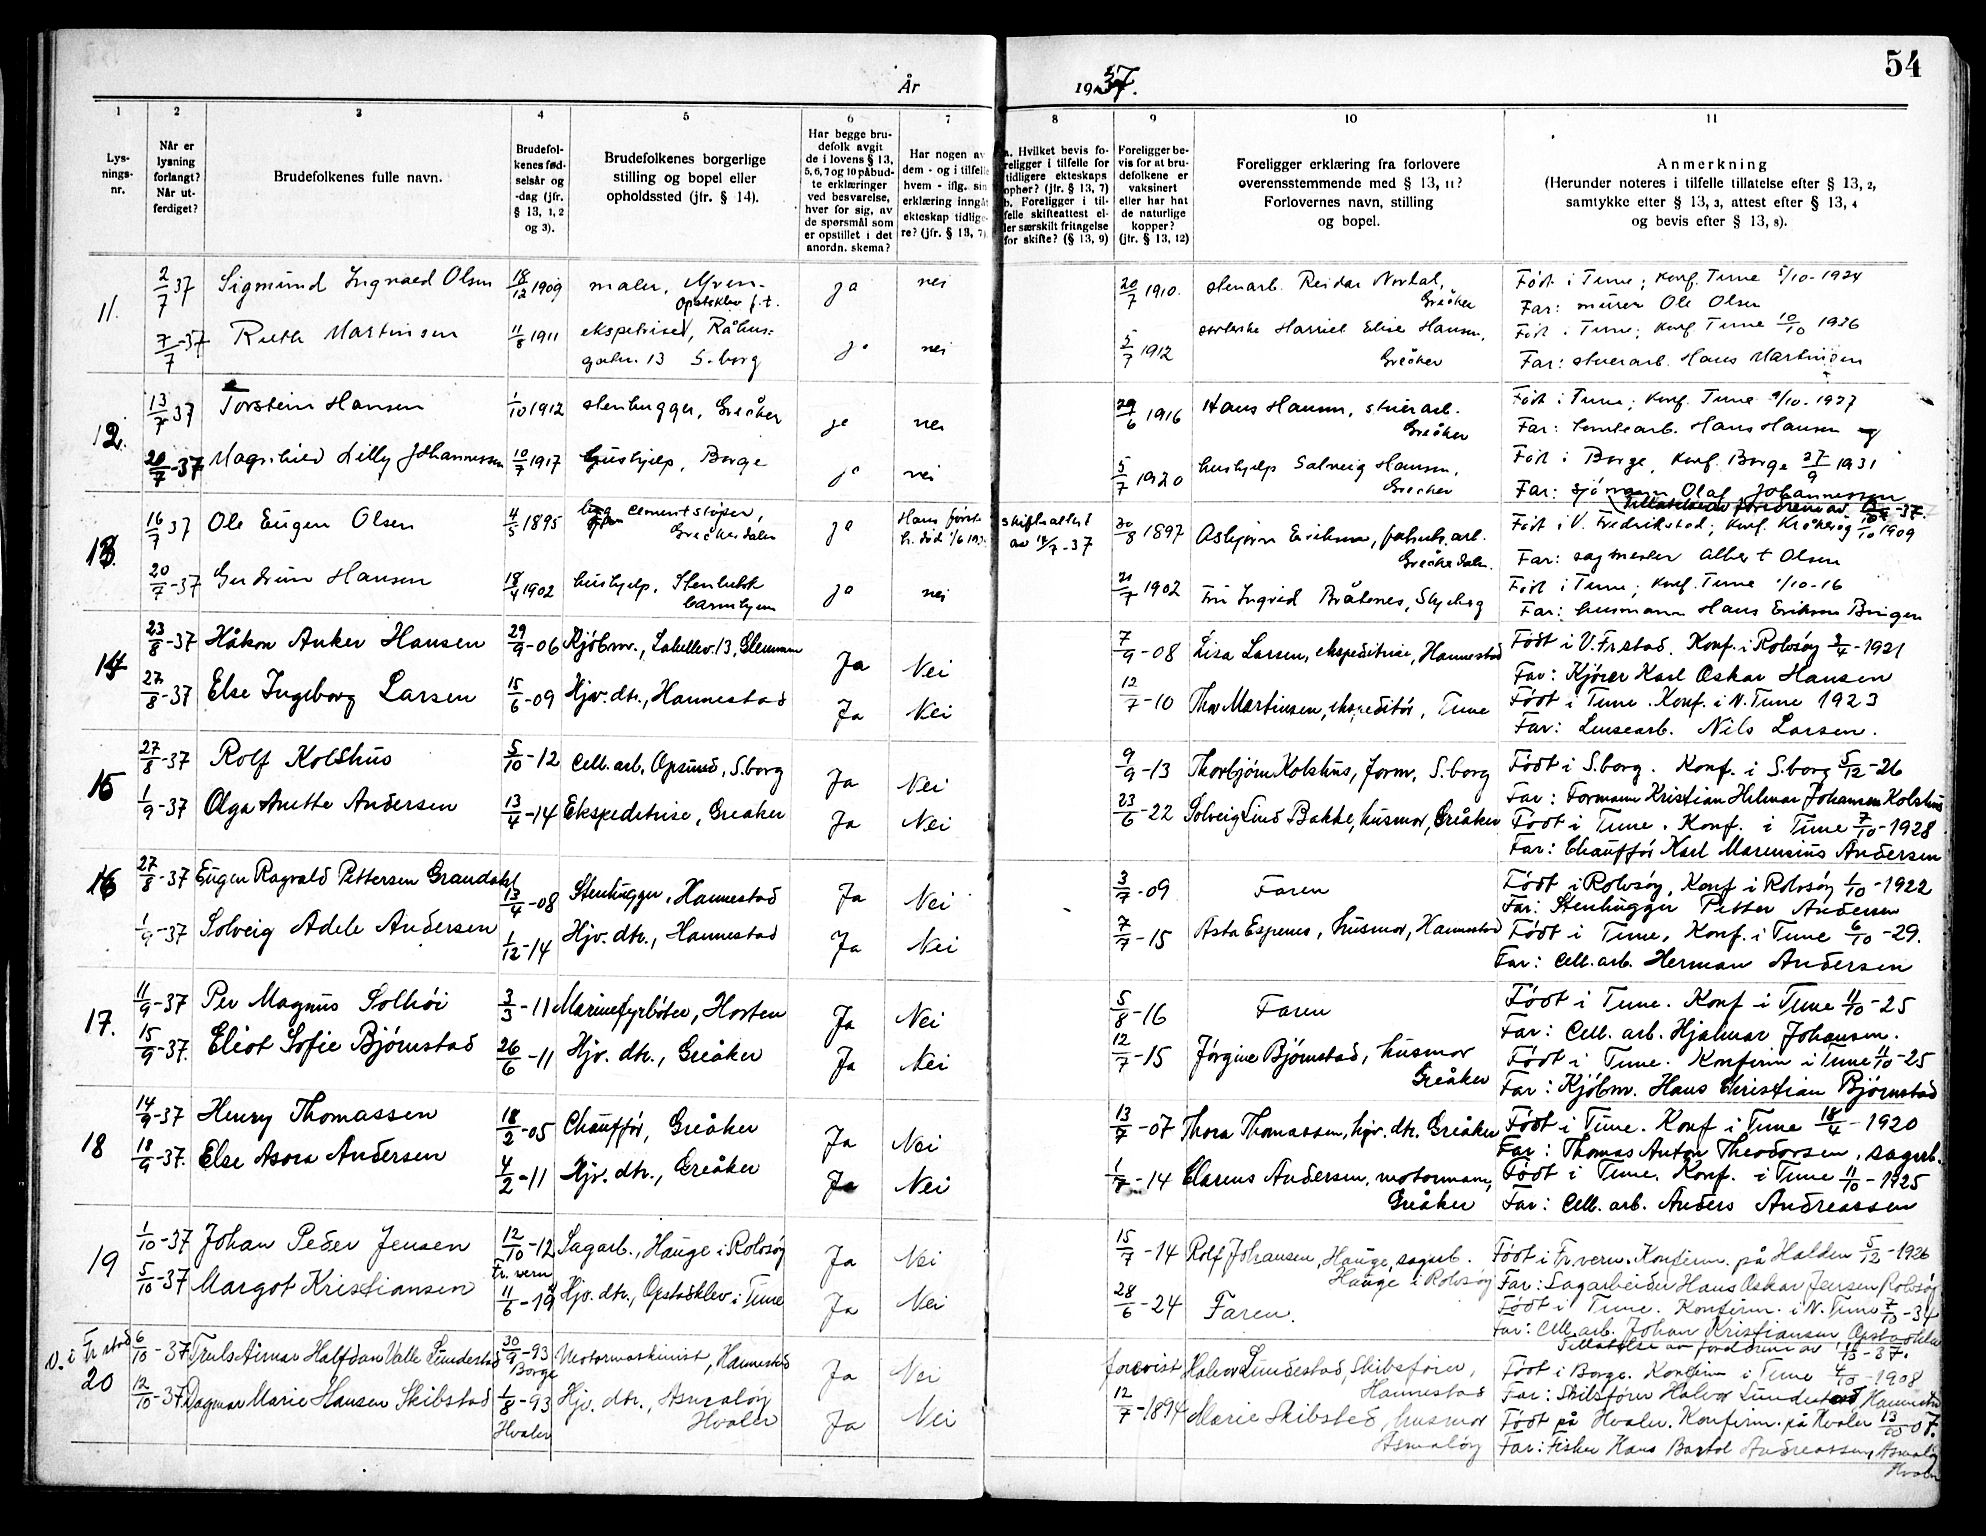 54
År 1937.
1 2 3 4 5 6 7 8 9 10 11
Lys-
nings-
nr.
Når er
lysning
forlangt?
Når ut-
ferdiget?
Brudefolkenes fulle navn.
Brudefol-
kenes fød-
selsår og
-dag (jfr.
§ 13, 1, 2
og 3).
Brudefolkenes borgerlige
stilling og bopel eller
opholdssted (jfr. § 14).
Har begge bru-
defolk avgit
de i lovens § 13,
5, 6, 7 og 10 påbud-
te erklæringer
ved besvarelse,
hver for sig, av
de spørsmål som
er opstillet i det
anordn. skema?
Har nogen av
dem - og i tilfelle
hvem - iflg. sin
erklæring inngåt
ekteskap tidlige-
re? (jfr. § 13, 7)
a. Hvilket bevis fo-
religger i tilfelle for
tidligere ekteskaps
ophør? (jfr. § 13, 7)
b. Foreligger i til-
felle skifteattest el-
ler særskilt fritagelse
for skifte? (§ 13, 9)
Foreligger be-
vis for at bru-
defolkene er
vaksinert
eller har hat
de naturlige
kopper?
(jfr. § 13, 12)
Foreligger erklæring fra forlovere
overensstemmende med § 13, 11?
Forlovernes navn, stilling
og bopel.
Anmerkning
(Herunder noteres i tilfelle tillatelse efter § 13, 2,
samtykke efter § 13, 3, attest efter § 13, 4
og bevis efter § 13, 8).
11. 2/7 37 Sigmund Ingvald Olsen 18/12 1909 maler, Opstaklev f.t. ja nei 20/7 1910. stenarb. Reidar Nordal, Greåker Født i Tune; konf. Tune 5/10-1924
Far: murer Ole Olsen
7/7-37 Ruth Martinsen 11/8 1911 13 S.borg ja nei 5/7 1912 Harriet Elise Hansen, Greåker Født i Tune; konf. Tune 10/10 1926
Far: Hans Martinsen
12. 13/7 37 Torstein Hansen 1/10 1912 stenhugger, Greåker ja nei 29/6 1916 Hans Hansen, Greåker Født i Tune; konf. Tune 9/10-1927
Far: Hans Hansen
20/7-37 Magnhild Lilly Johannessen 10/7 1917 hushjelp, Borge ja nei 5/7 1920 hushjelp Solveig Hansen, Greåker Født i Borge, konf. Borge 27/9 1931
Far: sjømann Olaf Johannessen
13. 16/7 37 Ole Eugen Olsen 4/5 1895 cementstøper, Greåkerdalen ja skifteattest av 14/7-37 30/8 1897 Asbjørn Eriksen, Greåkerdalen. Født i V. Fredrikstad; konf. Kråkerøy 10/10 1909
Far: sagmester Albert Olsen
20/7-37 Gudrun Hansen 18/4 1902 hushjelp, ja nei 21/7 1902 Fru Ingrid Bråtenes, Skjeberg Født i Tune; konf. Tune 1/10-16
Far: husmann Hans Eriksen
14 23/8-37 Håkon Anker Hansen 29/9-06 Kjøbm., Labellev. 13, Glemmen Ja Nei 7/9-08 Lisa Larsen, ekspeditrise, Hannestad Født i V. Fr.stad. Konf. i Rolvsøy 3/4-1921
Far: Kjører Karl Oskar Hansen
27/8-37 Else Ingeborg Larsen 15/6-09 Hjv. dtr., Hannestad Ja Nei 12/7-10 Thor Martinsen, ekspeditør, Tune Født i Tune. Konf. i N. Tune 1923
Far: Lensearb. Nils Larsen.
15 27/8-37 Rolf Kolshus 5/10-12 Cell. arb, Opsund, S.borg Ja Nei 9/9-13 Thorbjørn Kolshus, form, S.borg Født i S.borg. Konf. i S.borg 5/12-26
Far: Formann Kristian Helmar Johansen Kolshus
1/9-37 Olga Anette Andersen 13/4-14 Ekspeditrise, Greåker Ja Nei 23/6-22 Solveig Lund Bakke, husmor, Greåker Født i Tune. Konf. i Tune 7/10-1928
Far: Chauffør Karl Marensius Andersen
16 27/8-37 Eugen Ragvald Pettersen Grandahl 13/4-08 Stenhugger, Hannestad Ja Nei 3/7-09 Faren Født i Rolvsøy, Konf i Rolvsøy 1/10-1922
Far: Stenhugger Petter Andersen
1/9-37 Solveig Adele Andersen 1/12-14 Hjv. dtr., Hannestad Ja Nei 7/7-15 Asta Espenes, husmor, Hannestad Født i Tune, Konf. i Tune 6/10-29.
Far: Cell. arb. Herman Andersen
17. 11/9-37 Per Magnus Solhøi 3/3-11 Marinefyrbøter, Horten Ja Nei 5/8-16 Faren Født i Tune. Konf i Tune 11/10-25
Far: Cell. arb. Hjalmar Johansen.
15/9-37. Eliot Sofie Bjørnstad 26/6-11 Hjv. dtr., Greåker Ja Nei 12/7-15 Jørgine Bjørnstad, husmor Greåker Født i Tune. Konfirm i Tune 11/10-25
Far: Kjøbm. Hans Christian Bjørnstad
18 14/9-37 Henry Thomassen 18/2-05 Chauffør, Greåker Ja Nei 13/7-07 Thora Thomassen, hjv. dtr. Greåker Født i Tune. Konf i Tune 18/4-1920
Far: Thomas Anton Theodorsen, sagarb.
18/9-37. Else Asora Andersen 4/2-11 Hjv. dtr., Greåker Ja Nei 1/7-14 Clarens Andersen, motormann, Greåker Født i Tune. Konf. i Tune 11/10-1925
Far: Cell. arb. Anders Andreassen
19 1/10-37 Johan Peder Jensen 12/10-12 Fr. vern Sagarb., Hauge i Rolvsøy Ja Nei 15/7-14 Rolf Johansen, Hauge, sagarb. Hauge i Rolvsøy Født i Fr.vern. Konfirm. på Halden 5/12-1926
Far: Sagarbeider Hans Oskar Jensen, Rolvsøy
5/10-37 Margot Kristiansen 11/6-19 Hjv. dtr., Opstadklev i Tune Ja Nei 28/6-24 Faren. Født i Tune. Konfirm. i N. Tune 7/10-34
Far: Cell. arb. Johan Kristiansen,
V. i Fr.stad
20 6/10-37 Truls Einar Halfdan Valle Lundestad 30/9-93 Borge Motormaskinist, Hannestad Ja Nei forevist Halvor Lundestad, Skibsfører, Hannestad Født i Borge. Konfirm i Tune 4/10-1908
Far: Skibsfører Halvor Lundestad, Hannestad
12/10-37 Dagmar Marie Hansen Skibstad 1/8-93 Hvaler Hjv. dtr., Asmaløy Hvaler Ja Nei 12/7-1894 Marie Skibsted, husmor Asmaløy Født på Hvaler. Konfirm. på Hvaler 13/10 07.
Far: Fisker Hans Bartol Andreassen, Asmaløy
Hvaler